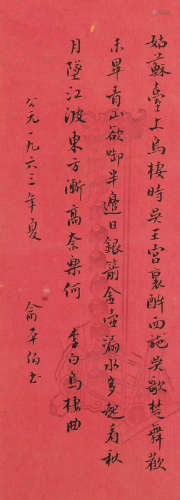 姑蘇臺上烏棲時吳王宮裏醉西施吳歌楚舞歡
未畢青山欲啣半邊日銀箭金壺漏水多起看秋
月墜江波東方漸高奈樂何 李白烏棲曲
公元一九六三年夏 俞平伯書